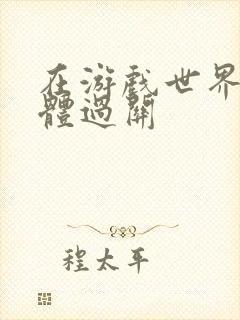 在游戏世界
體過關
程太平